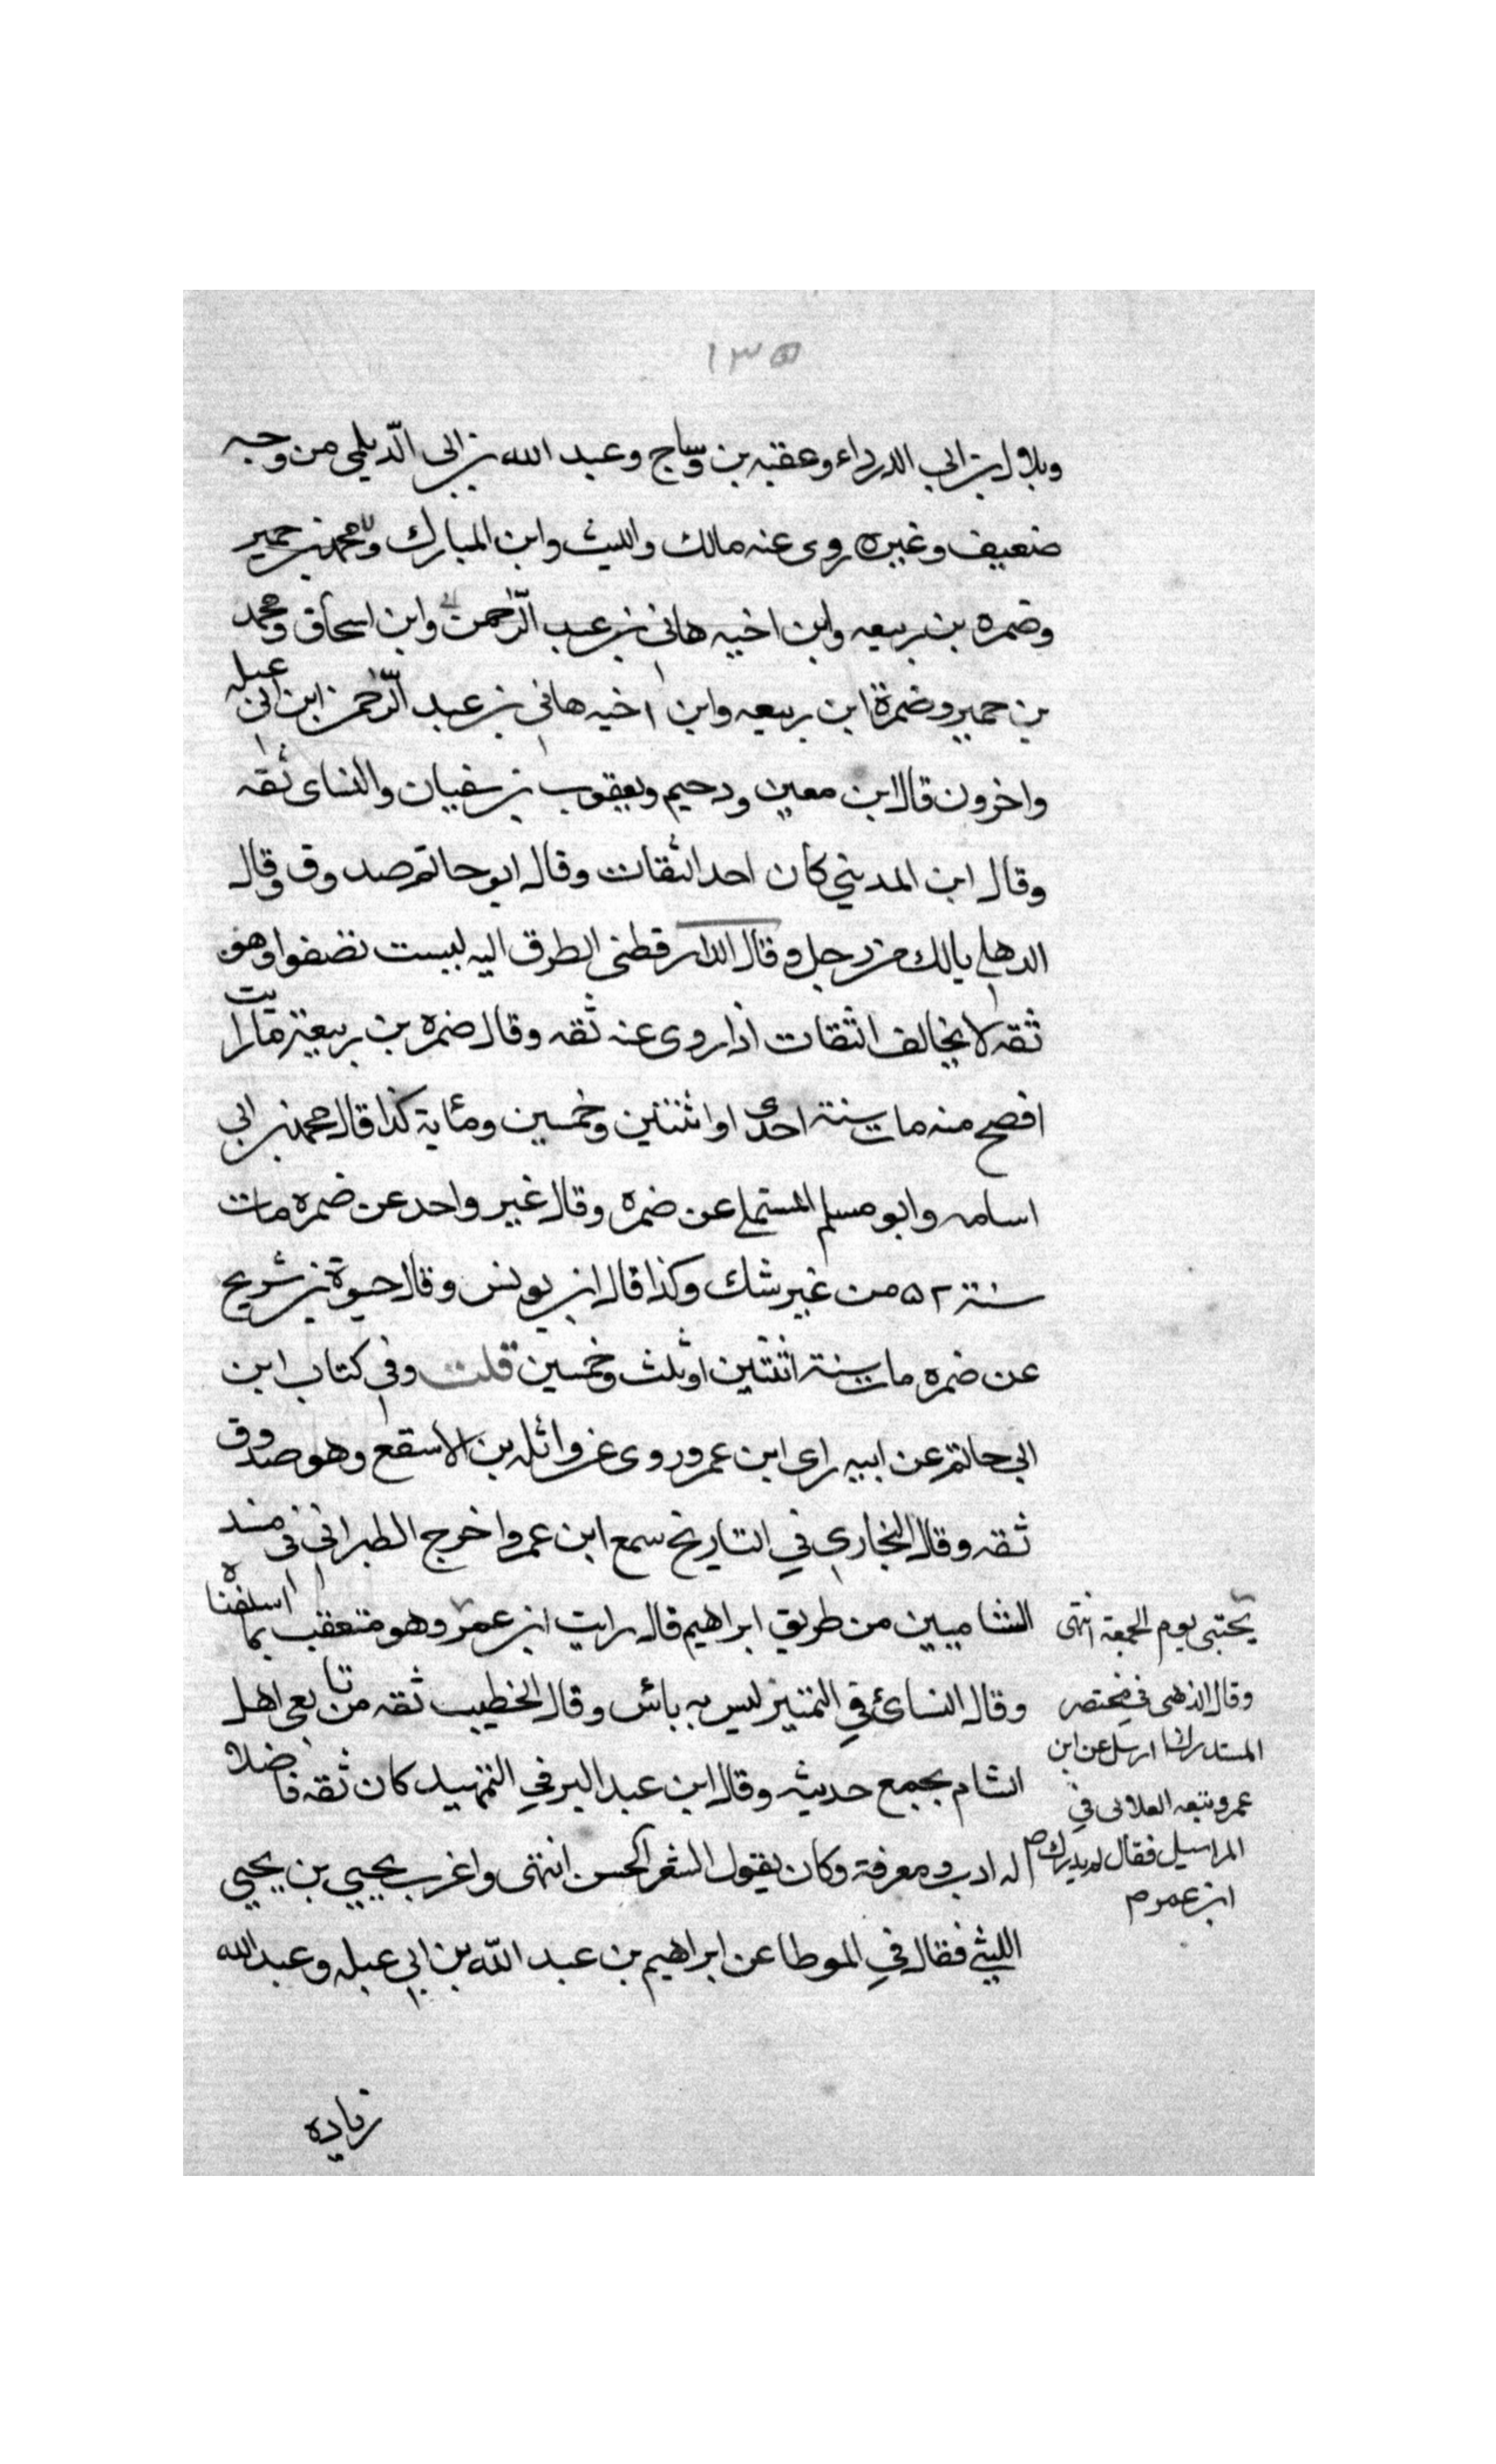 ١٣٥
وبلال بن ابي الدرداء وعقبه بن وساج وعبد الله بن ابي الديلمي من وجه
ضعيف وغيره روى عنه مالك والليث وابن المبارك ومحمد بن حمير
وضمره بن ربيعه وابن اخيه هاني بن عبد الرحمن وابن اسحاق ومحمد
بن حمير وضمرة ابن ربيعه وابن اخيه هاني بن عبد الرحمن ابن ابي عبله
واخرون قال ابن معين ودحيم ويعقوب بن سفيان والنساى ثقه
وقال ابن المديني كان احد الثقات وقال ابو حاتم صدوق وقال
الدهلي يالك من رجل وقال الدارقطني الطرق اليه ليست تصفوا وهو
ثقه لا يخالف الثقات اذا روى عنه ثقه وقال ضمره بن ربيعة ما رايت
افصح منه مات سنة احدى او اثنتين وخمسين ومئاية كذا قال محمد بن ابي
اسامه وابو مسلم المستملي عن ضمره وقال غير واحد عن ضمره مات
سنة ٥٢ من غير شك وكذا قال ابن يونس وقال حيوة بن شريح
عن ضمره مات سنة اثنتين او ثلث وخمسين قلت وفي كتاب ابن
ابي حاتم عن ابيه راى ابن عمر وروى عن واثله بن الاسقع وهو صدوق
ثقه وقال البخاري في التاريخ سمع ابن عمر واخرج الطبراني في مسند
الشاميين من طريق ابراهيم قال رايت ابن عمر وهو متعقب بما اسلفناه
وقال النسائ في التمييز ليس به باس وقال الخطيب ثقه من تابعى اهل
الشام يجمع حديثه وقال ابن عبد البر في التمهيد كان ثقه فاضلا
له ادب ومعرفة وكان يقول الشعر الحسن انتهى واغرب يحيى بن يحيى
الليثي فقال في الموطا عن ابراهيم بن عبد الله بن ابي عبله وعبد الله
يحتبى يوم الجمعة انتهى
وقال الذهبى في مختصر
المستدرك ارسل عن ابن
عمر وتبعه العلائى في
المراسيل فقال لم يدرك
ابن عمر م
زياده